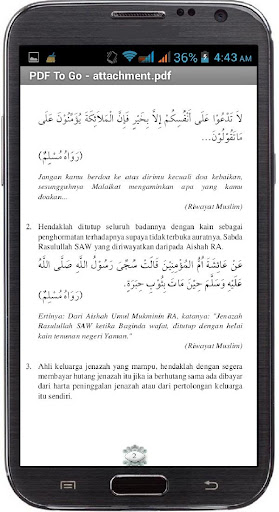 36% 4:43 AM
PDF To Go - attachment.pdf
لَا تَدْعُوْا عَلَى أَنْفُسِكُمْ إِلَّا بِخَيْرٍ فَإِنَّ الْمَلَائِكَةَ يُؤَمِّنُوْنَ عَلَى
مَاتَقُوْلُوْنَ...
(رَوَاهُ مُسْلِمٌ)
Jangan kamu berdoa ke atas dirimu kecuali doa kebaikan,
sesungguhnya Malaikat mengaminkan apa yang kamu
doakan...
(Riwayat Muslim)
2. Hendaklah ditutup seluruh badannya dengan kain sebagai
penghormatan terhadapnya supaya tidak terbuka auratnya. Sabda
Rasulullah SAW yang diriwayatkan dari pada Aishah RA.
عَنْ عَائِشَةَ أُمِّ الْمُؤْمِنِيْنَ قَالَتْ سُجِّىَ رَسُوْلُ اللَّهِ صَلَّى اللَّهُ
عَلَيْهِ وَسَلَّمَ حِيْنَ مَاتَ بِثَوْبِ حِبَرَةٍ.
(رَوَاهُ مُسْلِمٌ)
Ertinya: Dari Aishah Umul Mukminin RA, katanya: "Jenazah
Rasulullah SAW ketika Baginda wafat, ditutup dengan kelai
kain tenunan negeri Yaman."
(Riwayat Muslim)
3. Ahli keluarga jenazah yang mampu, hendaklah dengan segera
membayar hutang jenazah itu jika ia berhutang sama ada dibayar
dari harta peninggalan jenazah atau dari pertolongan keluarga
itu sendiri.
2